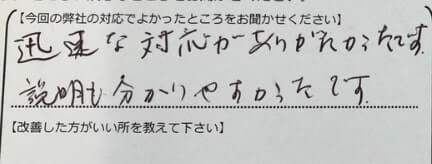 【今回の弊社の対応でよかったところをお聞かせください】
迅速な対応がありがたかったです.
説明も分かりやすかったです.
【改善した方がいい所を教えて下さい】